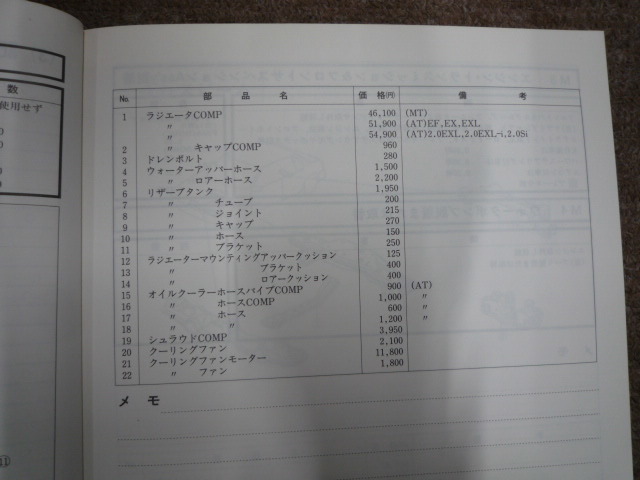 数
使用せず
No. 部品名 価格(円) 備考
1 ラジエータCOMP 46,100 (MT)
〃 51,900 (AT)EF,EX,EXL
〃 54,900 (AT)2.0EXL,2.0EXL-i,2.0Si
2 〃 キャップCOMP 960
3 ドレンボルト 280
4 ウォーターアッパーホース 1,500
5 〃 ロアーホース 2,200
6 リザーブタンク 1,950
7 〃 チューブ 200
8 〃 ジョイント 215
9 〃 キャップ 270
10 〃 ホース 150
11 〃 ブラケット 250
12 ラジエーターマウンティングアッパークッション 125
13 〃 ブラケット 400
14 〃 ロアークッション 400
15 オイルクーラーホースパイプCOMP 900 (AT)
16 〃 ホースCOMP 1,000 〃
17 〃 ホース 600 〃
18 〃 〃 1,200 〃
19 シュラウドCOMP 3,950
20 クーリングファン 2,100
21 クーリングファンモーター 11,800
22 〃 ファン 1,800
メモ